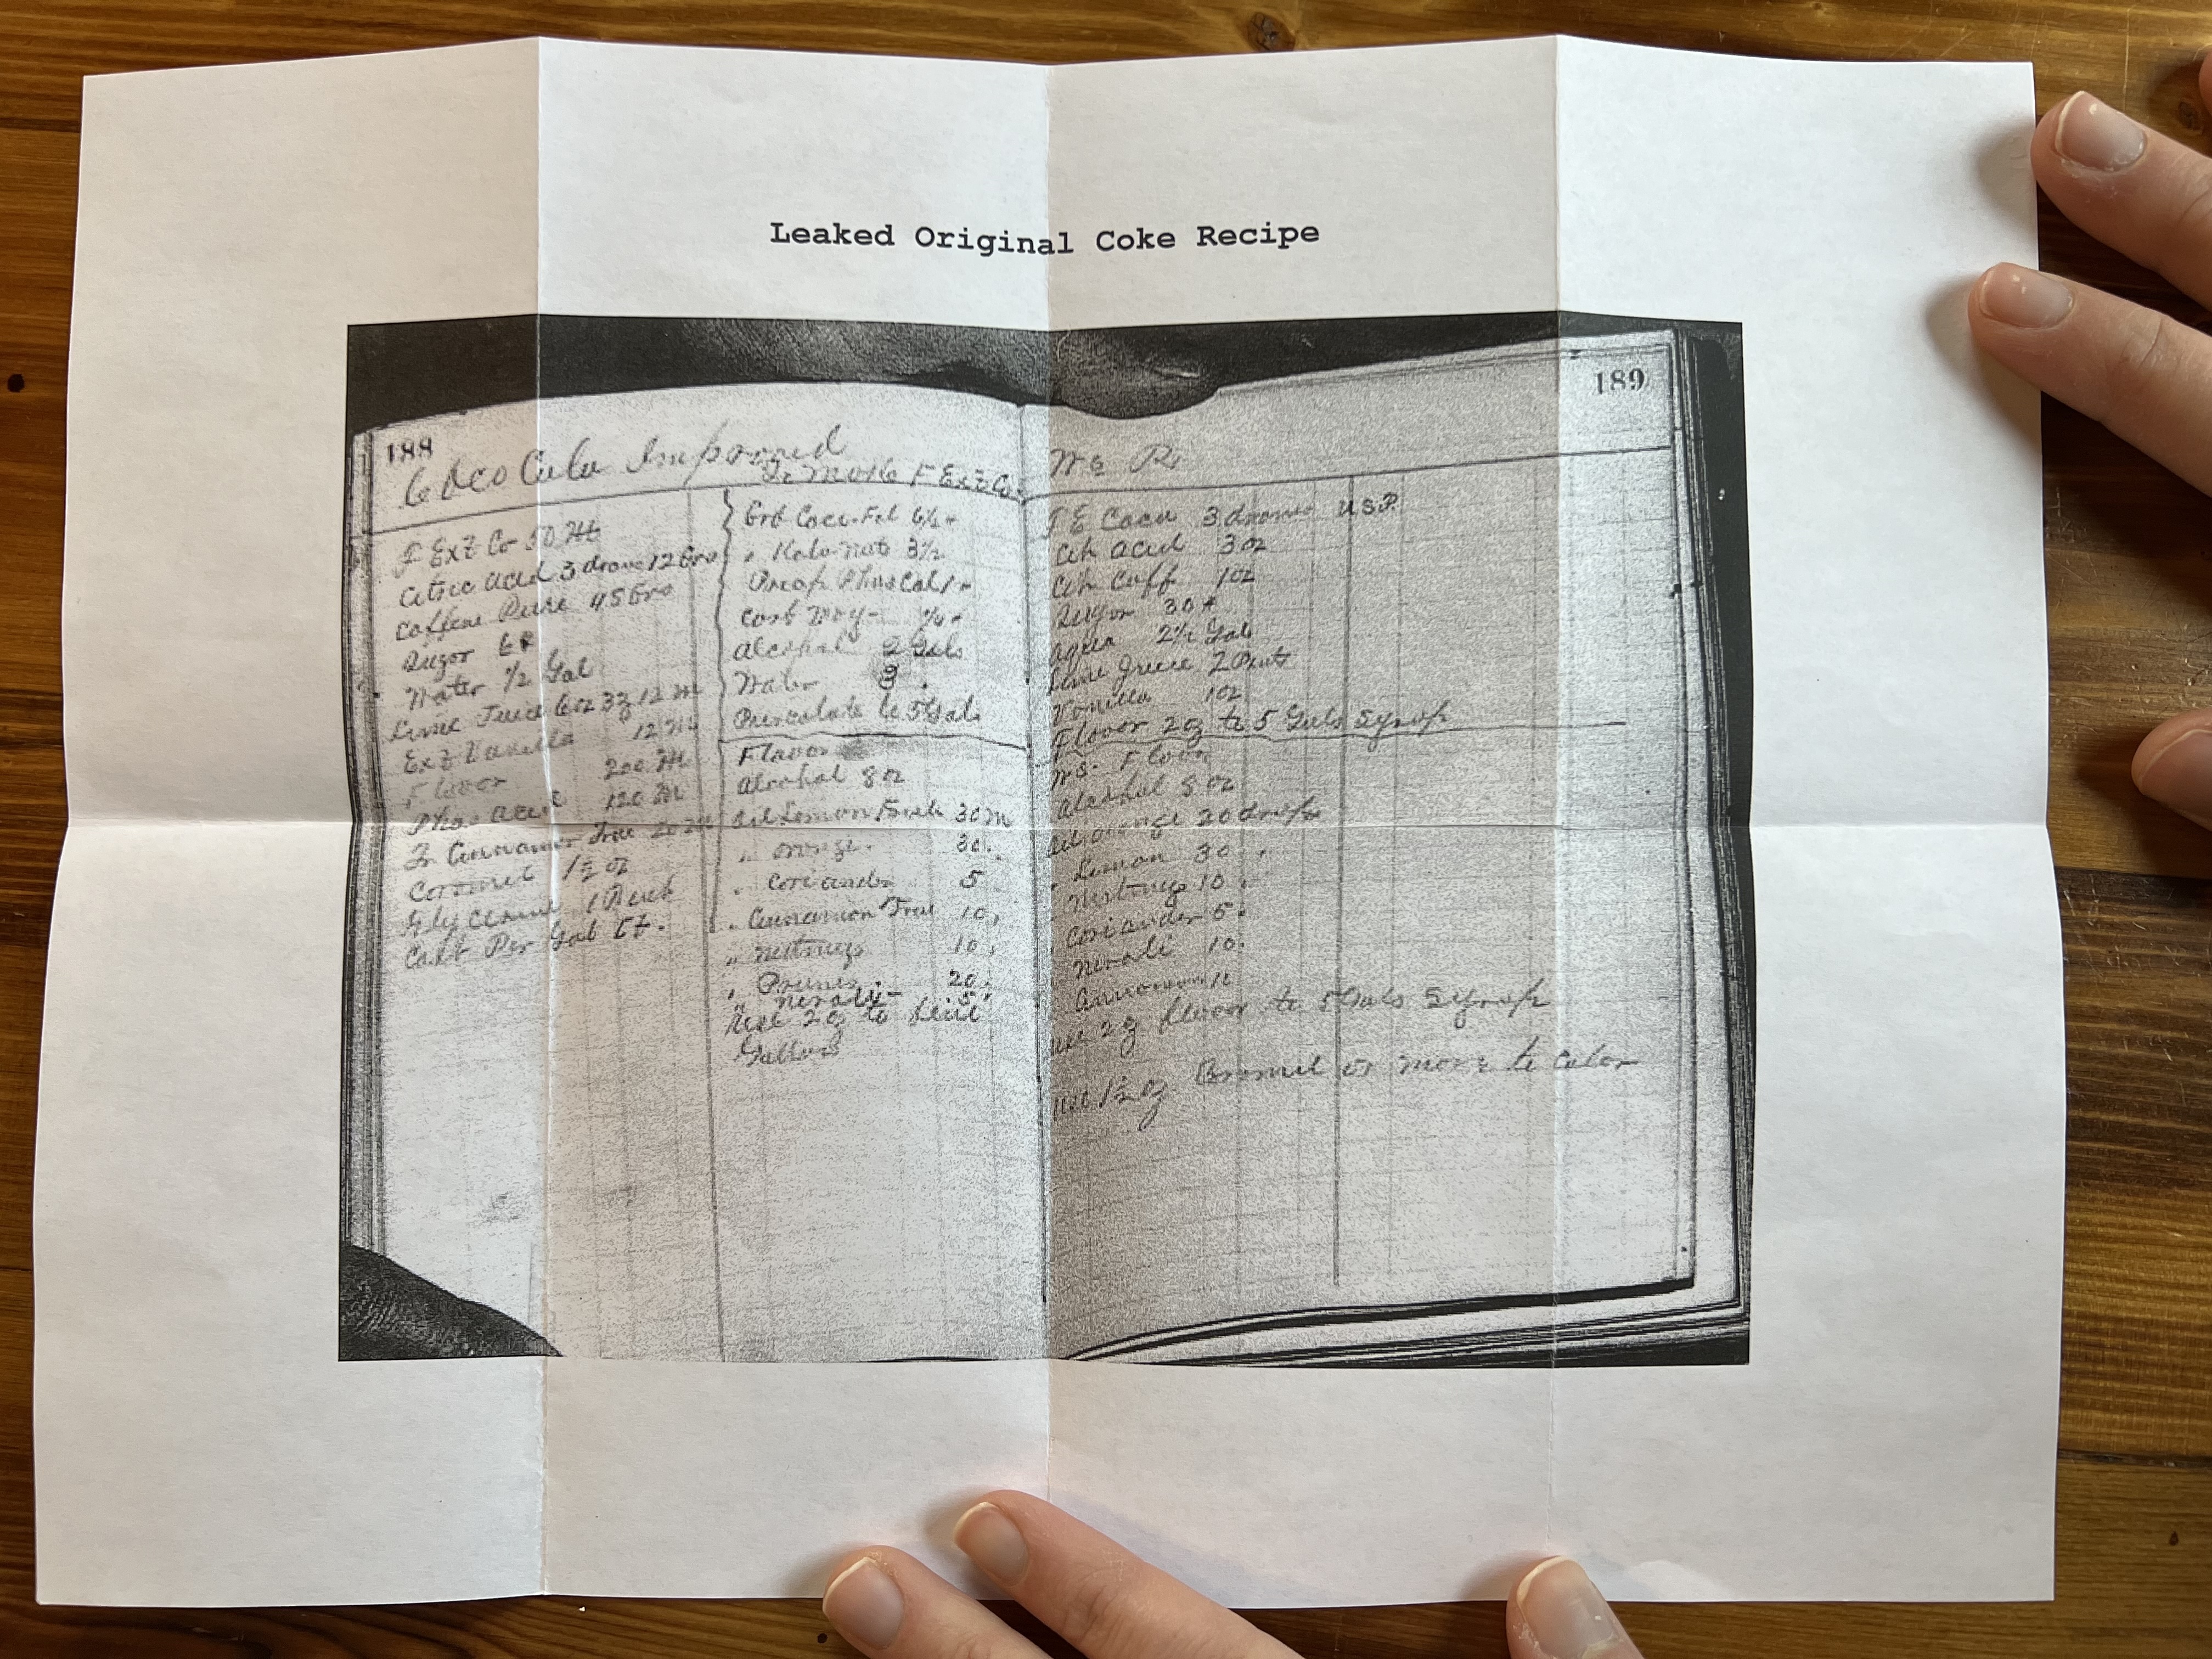 Leaked Original Coke Recipe
188
Coco Cola Improved
To Make F Ext Co
F Ext Co 50
Citric Acid 3 drams 12 Grs
Caffeine Pure 45 Grs
Sugar 6
Water 1/2 Gal
Lime Juice 6 oz 12 M
Ext Vanilla 12 M
Flavor 200 M
Phos Acid 120 M
Cinnamon True
Caramel 1 1/2 oz
Glycerine
Cost Per Gal
Grd Coca
" Kola nut 3 1/2
Precip Phos Cal 1
Carb Mag 1/4
Alcohol 2 Gals
Water 3 "
Percolate to 5 Gals
Flavor
Alcohol 8 oz
Oil Lemon 30 M
" orange. 30.
" Coriander 5
" Cinnamon True 10 "
" Nutmeg 10 "
" 20 "
" neroli 5 "
Use 2 oz to
Gallons
189
F E Coca 3 drams U S P
Cit Acid 3 oz
Cit Caff 1 oz
Sugar 30 #
Aqua 2 1/2 Gal
Lime Juice 2
Vanilla 1 oz
Flavor 2 oz to 5 Gals Syrup
Alcohol 8 oz
Oil orange 20 drops
" Lemon 30 "
" Nutmeg 10 "
" Coriander 5 "
" Neroli 10 "
" Cinnamon
use 2 oz flavor to 5 Gals Syrup
use 1 1/2 oz or more to color